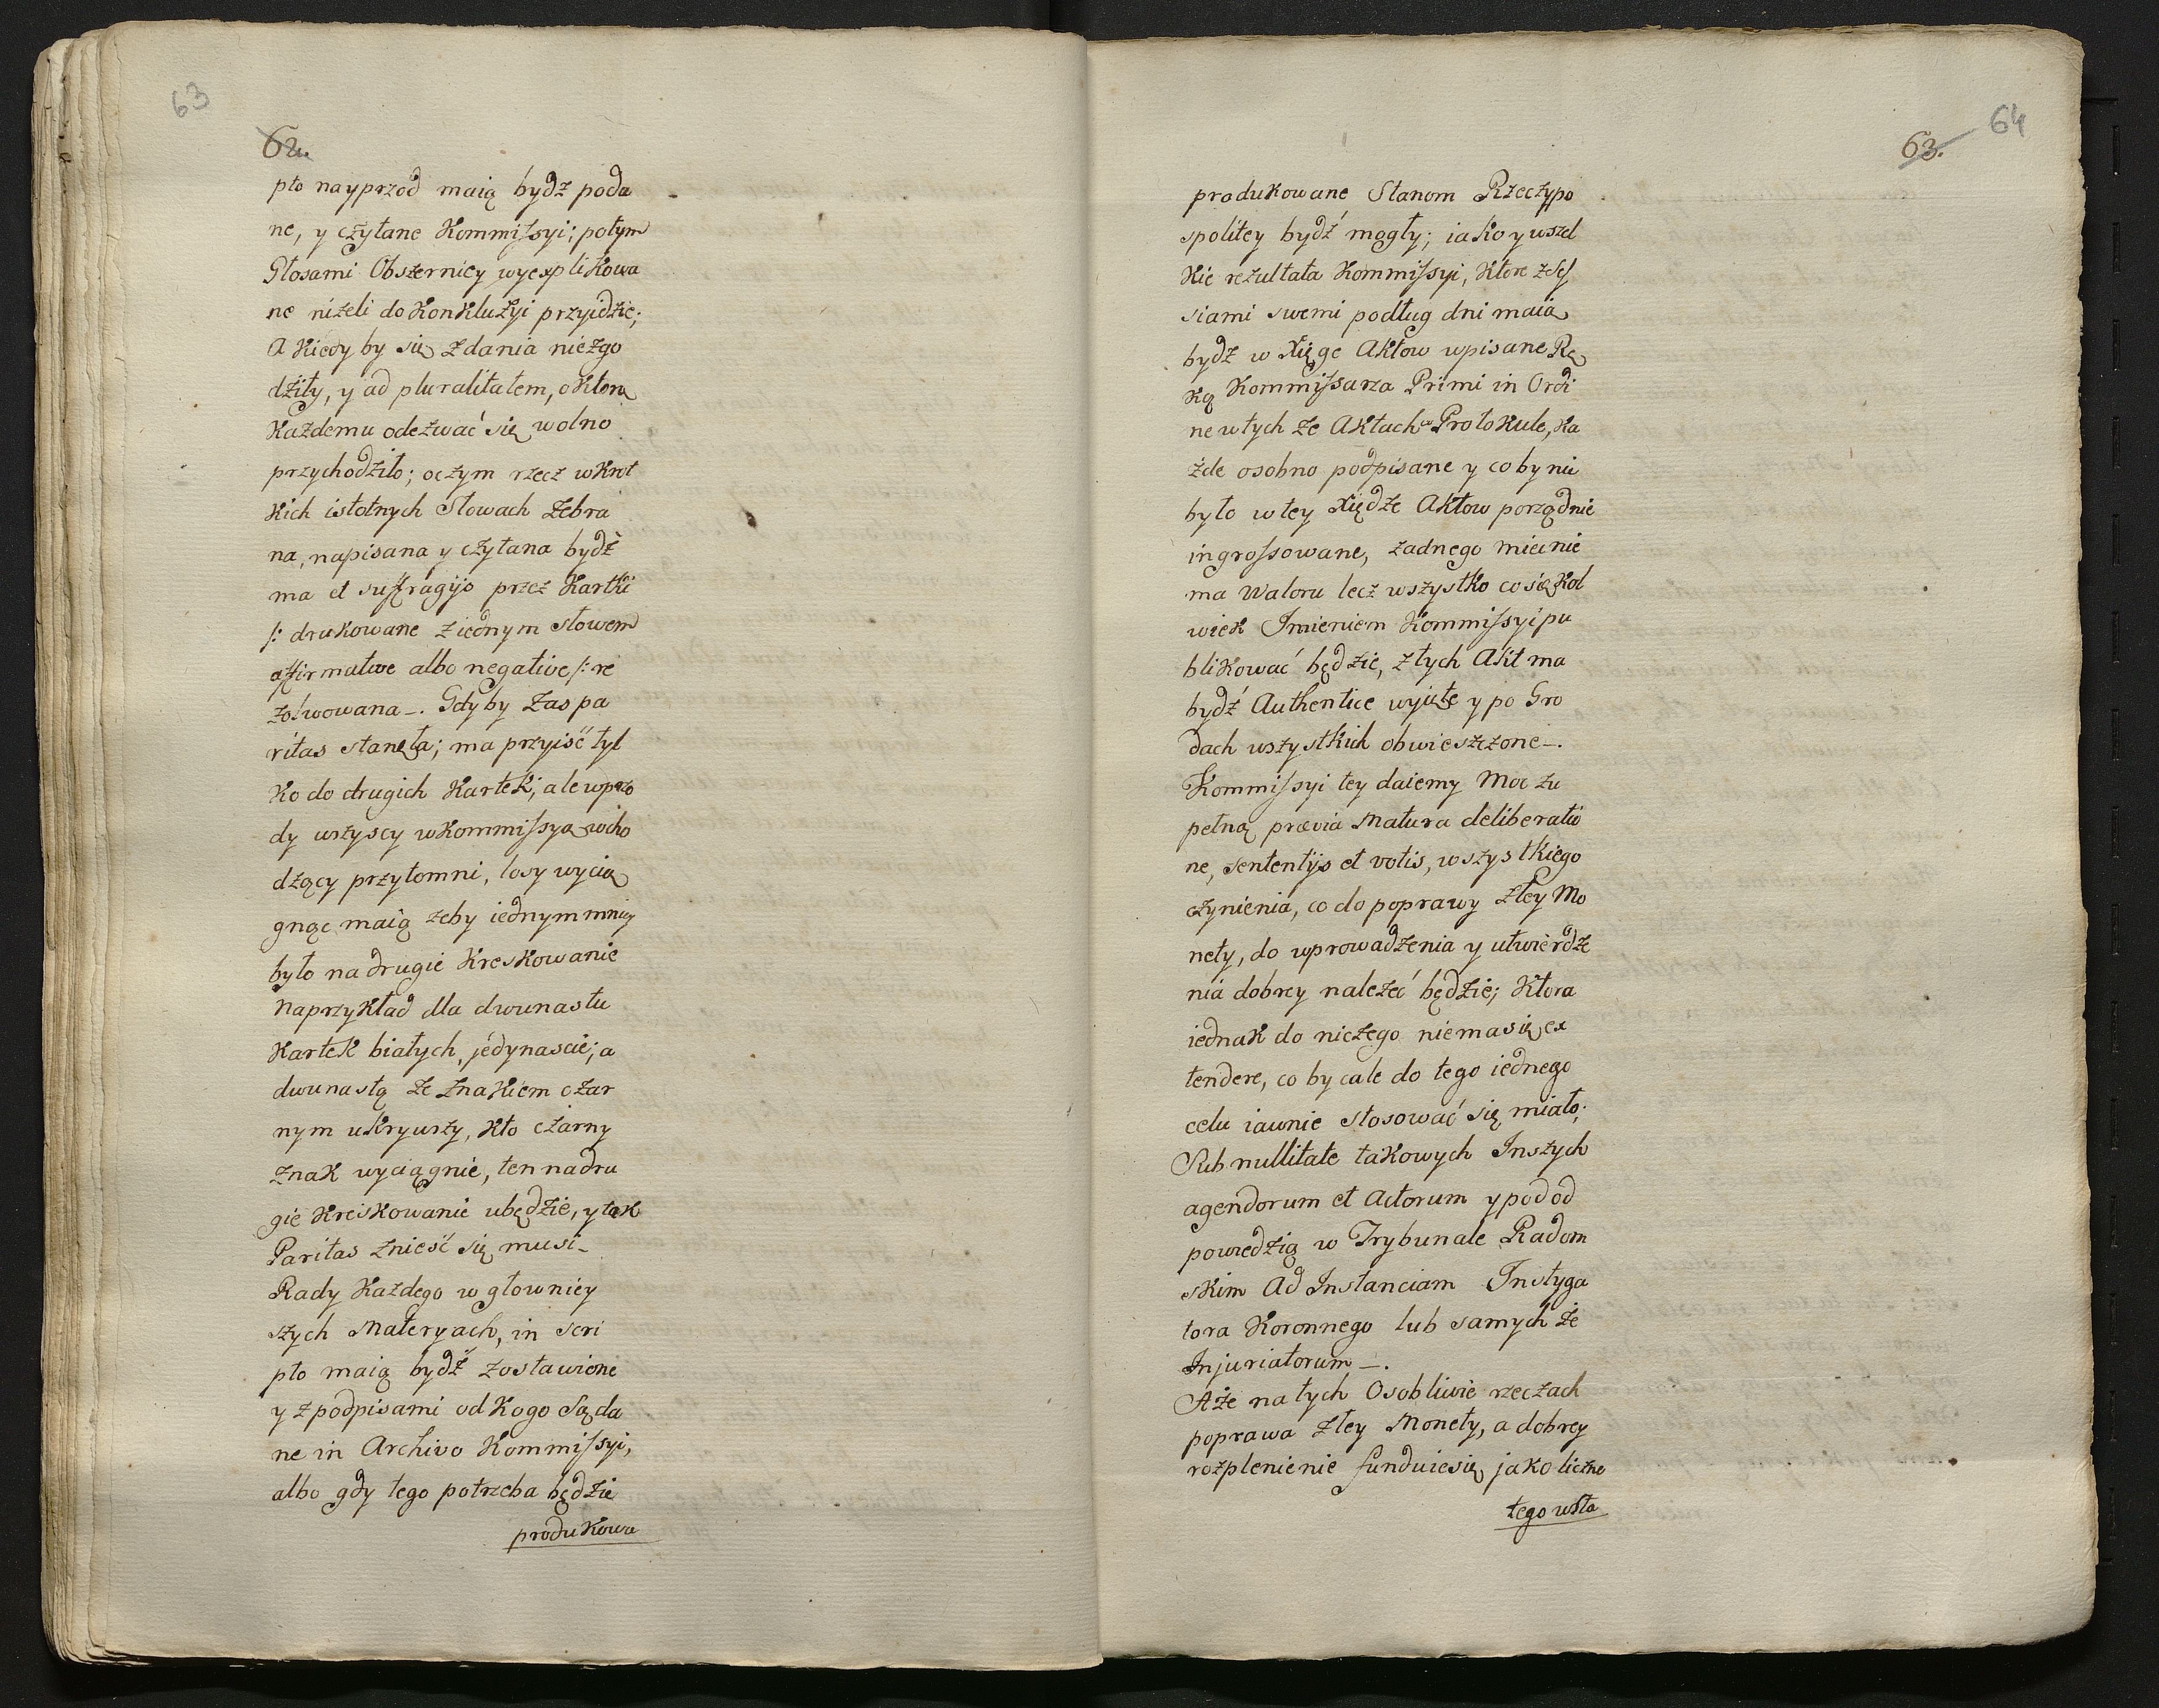 63
62.
pto nayprzod maią bydź poda
ne, y czytane Kommissyi; potym
Głosami Obszerniey wyexplikowa
ne niżeli do Konkluzyi przyidzie;
A kiedy by się zdania niezgo
dziły, y ad pluralitatem, o ktorą
Każdemu odezwać się wolno
przychodziło; oczym rzecz w krot
kich istotnych słowach zebra
na, napisana y czytana bydź
ma et suffragijs przez Kartki
/: drukowane z iednym słowem
affirmative albo negative /: re
zolwowana –. Gdyby zas pa
ritas stanęła; ma przyiść tyl
ko do drugich Kartek; ale wprzo
dy wszyscy w Kommissyą wcho
dzący przytomni, losy wycią
gnąc maią zeby iednym mniey
było na drugie Kreskowanie
naprzykład dla dwunastu
Kartek białych, jedynascie; a
dwunastą ze znakiem czar
nym ukrywszy, kto czarny
znak wyciągnie, ten na dru
gie Kreskowanie ubędzie, y tak
Paritas znieść się musi –
Rady Każdego w głowniey
szych Materyach, in scri
pto maią bydź zostawione
y z podpisami od Kogo są da
ne in Archivo Kommissyi,
albo gdy tego potrzeba będzie
produkowa
64
63.
produkowane Stanom Rzeczypo
spolitey bydź mogły; iako y wszel
kie rezultata Kommissyi, ktore z Ses
siami swemi podług dni maią
bydz w Xięgę Aktow wpisane Rę
ką Kommissarza Primi in Ordi
ne w tych ze Aktach Protokule, ka
żde osobno podpisane y co by nie
było w tey Xiędze Aktow porządnie
ingrossowane, zadnego mieć nie
ma Waloru lecz wszystko co się kol
wiek Imieniem Kommissyi pu
blikować będzie, z tych Akt ma
bydź Authentice wyięte y po Gro
dach wszystkich obwieszczone –.
Kommissyi tey daiemy Moc zu
pełną prævia Matura deliberatio
ne, sententijs et votis, wszystkiego
czynienia, co do poprawy złey Mo
nety, do wprowadzenia y utwierdze
nia dobrey należeć będzie; ktora
iednak do niczego niema się ex
tendere, co by cale do tego iednego
celu iawnie stosować się miało;
Sub nullitate takowych Inszych
agendorum et Actorum y pod od
powiedzią w Trybunale Radom
skim Ad Instanciam Instyga
tora Koronnego lub samych że
Injuriatorum –.
A że na tych Osobliwie rzeczach
poprawa złey Monety, a dobrey
rozplenienie funduie się, jako liczne
tego usta